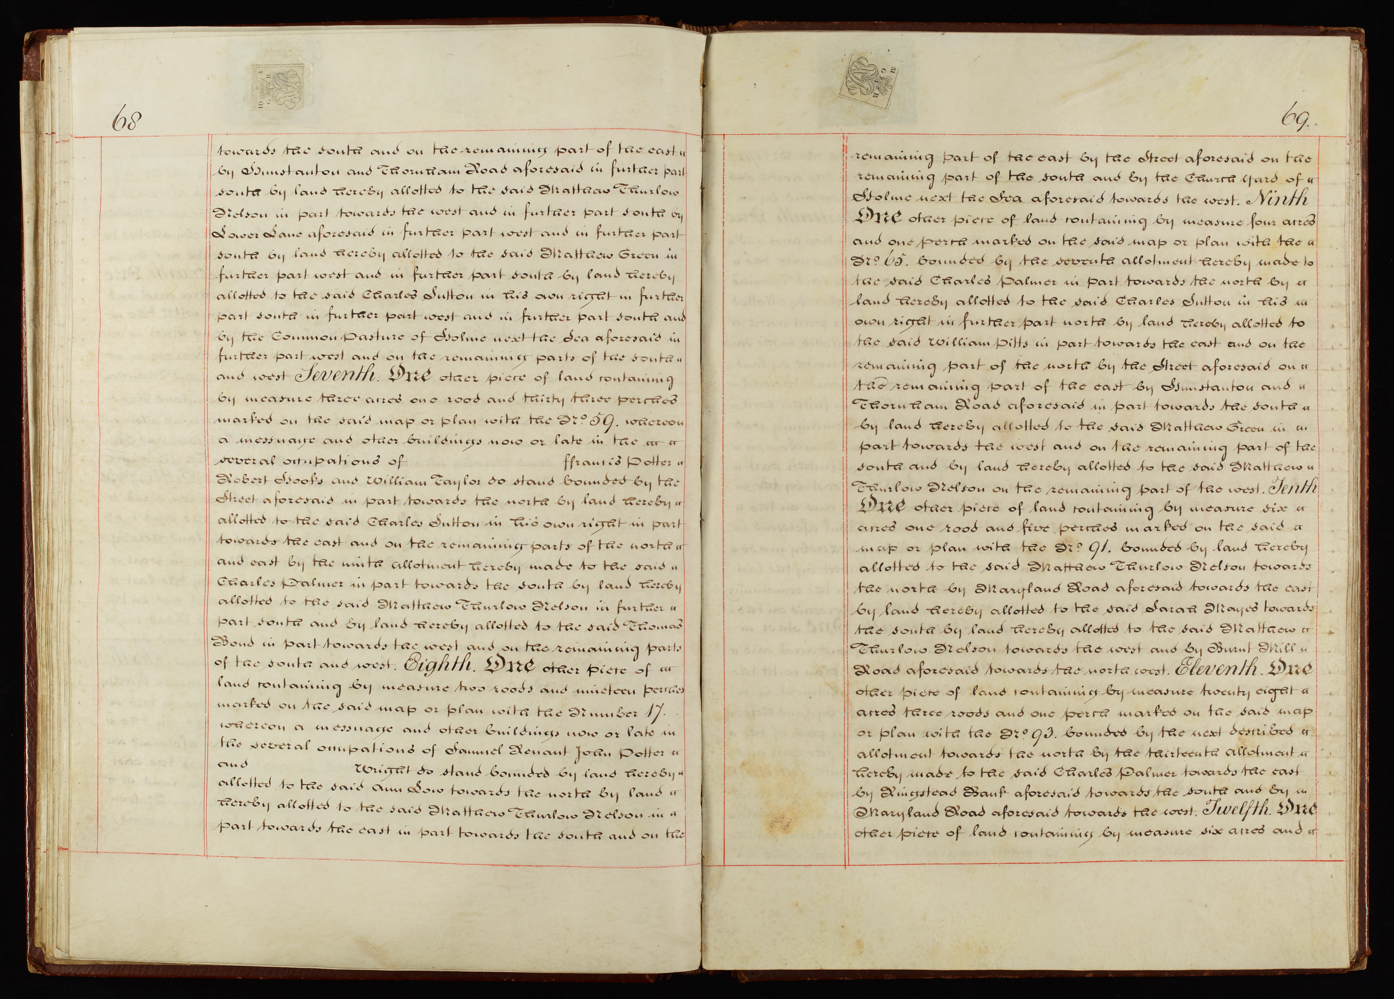 68
towards the south and on the remaining part of the east
by Hunstanton and Thornham Road aforesaid in further part
south by land hereby allotted to the said Matthew Thurlow
Nelson in part towards the west and in further part south by
Lower Lane aforesaid in further part west and in further part
south by land hereby allotted to the said Matthew Green in
further part west and in further part south by land hereby
allotted to the said Charles Sutton in his own right in further
part south in further part west and in further part south and
by the Common Pasture of Holme next the Sea aforesaid in
further part west and on the remaining parts of the south
and west. Seventh. One other piece of land containing
by measure three acres one rood and thirty three perches
marked on the said map or plan with the No. 59. whereon
a messuage and other buildings now or late in the
several occupations of ffrancis Potter
Robert Hooks and William Taylor do stand bounded by the
Street aforesaid in part towards the north by land hereby
allotted to the said Charles Sutton in his own right in part
towards the east and on the remaining parts of the north
and east by the ninth allotment hereby made to the said
Charles Palmer in part towards the south by land hereby
allotted to the said Matthew Thurlow Nelson in further
part south and by land hereby allotted to the said Thomas
Bond in part towards the west and on the remaining parts
of the south and west. Eighth. One other piece of
land containing by measure two roods and nineteen perches
marked on the said map or plan with the Number 17.
whereon a messuage and other buildings now or late in
the several occupations of Samuel Renaut John Potter
and Wright do stand bounded by land hereby
allotted to the said Ann Low towards the north by land
hereby allotted to the said Matthew Thurlow Nelson in
part towards the east in part towards the south and on the
69.
remaining part of the east by the Street aforesaid on the
remaining part of the south and by the Church Yard of
Holme next the Sea aforesaid towards the west. Ninth
One other piece of land containing by measure four acres
and one perch marked on the said map or plan with the
No. 65. bounded by the seventh allotment hereby made to
the said Charles Palmer in part towards the north by
land hereby allotted to the said Charles Sutton in his
own right in further part north by land hereby allotted to
the said William Pitts in part towards the east and on the
remaining part of the north by the Street aforesaid on
the remaining part of the east by Hunstanton and
Thornham Road aforesaid in part towards the south
by land hereby allotted to the said Matthew Green in
part towards the west and on the remaining part of the
south and by land hereby allotted to the said Matthew
Thurlow Nelson on the remaining part of the west. Tenth
One other piece of land containing by measure six
acres one rood and five perches marked on the said
map or plan with the No. 91. bounded by land hereby
allotted to the said Matthew Thurlow Nelson towards
the north by Maryland Road aforesaid towards the east
by land hereby allotted to the said Sarah Mayes towards
the south by land hereby allotted to the said Matthew
Thurlow Nelson towards the west and by Burnt Mill
Road aforesaid towards the north west. Eleventh. One
other piece of land containing by measure twenty eight
acres three roods and one perch marked on the said map
or plan with the No. 93. bounded by the next described
allotment towards the north by the thirteenth allotment
hereby made to the said Charles Palmer towards the east
by Ringstead Bank aforesaid towards the south and by
Maryland Road aforesaid towards the west. Twelfth. One
other piece of land containing by measure six acres and